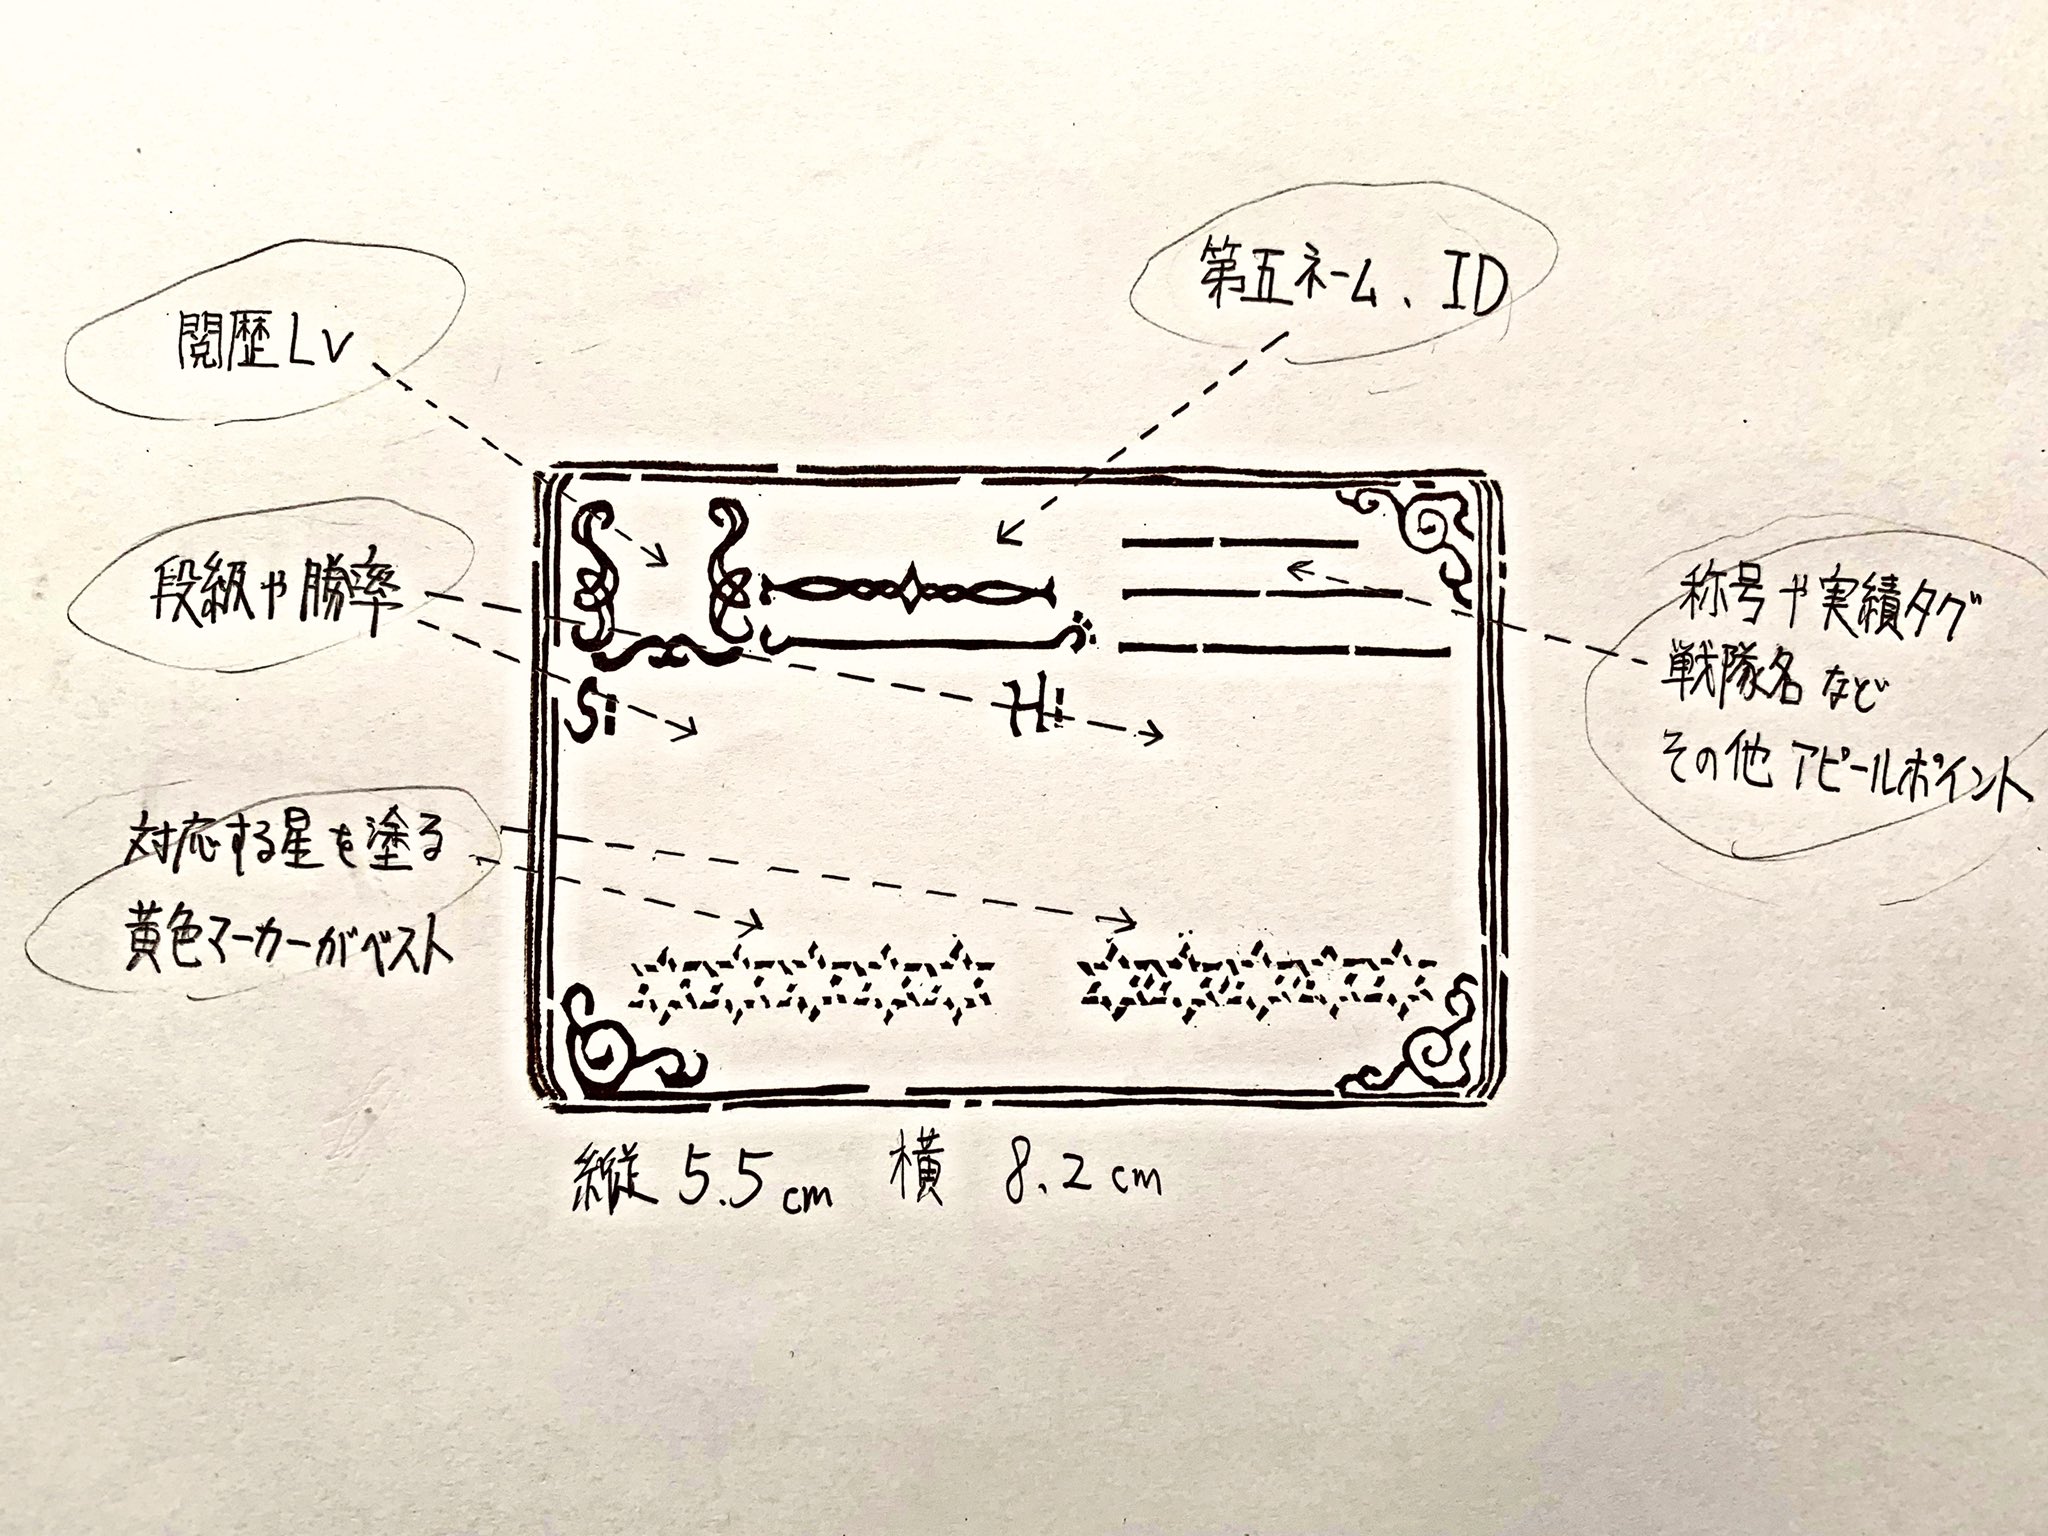 第五ネーム、ID
閲歴Lv
段級や勝率
称号や実績タグ
戦隊名など
その他アピールポイント
S:
H:
対応する星を塗る
黄色マーカーがベスト
縦 5.5cm 横 8.2cm